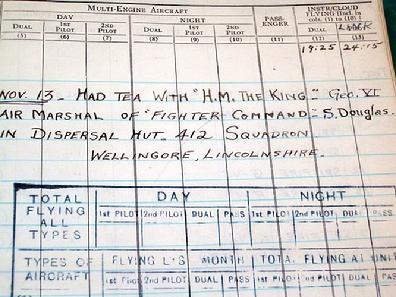 MULTI-ENGINE AIRCRAFT
DAY NIGHT PASS-ENGER INSTR/CLOUD FLYING [Incl. in cols. (1) to (10)]
DUAL 1ST PILOT 2ND PILOT DUAL 1ST PILOT 2ND PILOT DUAL LINK
(5) (6) (7) (8) (9) (10) (11) (12) (13)
19:25 24:15
NOV. 13 - HAD TEA WITH "H.M. THE KING" - GEO. VI
AIR MARSHAL OF "FIGHTER COMMAND" - S. DOUGLAS.
IN DISPERSAL HUT - 412 SQUADRON
WELLINGORE, LINCOLNSHIRE.
TOTAL FLYING ALL TYPES DAY NIGHT
1st PILOT 2nd PILOT DUAL PASS 1st PILOT 2nd PILOT DUAL PASS
TYPES OF AIRCRAFT FLYING MONTH FLYING
1st PILOT 2nd PILOT DUAL PASS 1st PILOT 2nd PILOT DUAL PASS